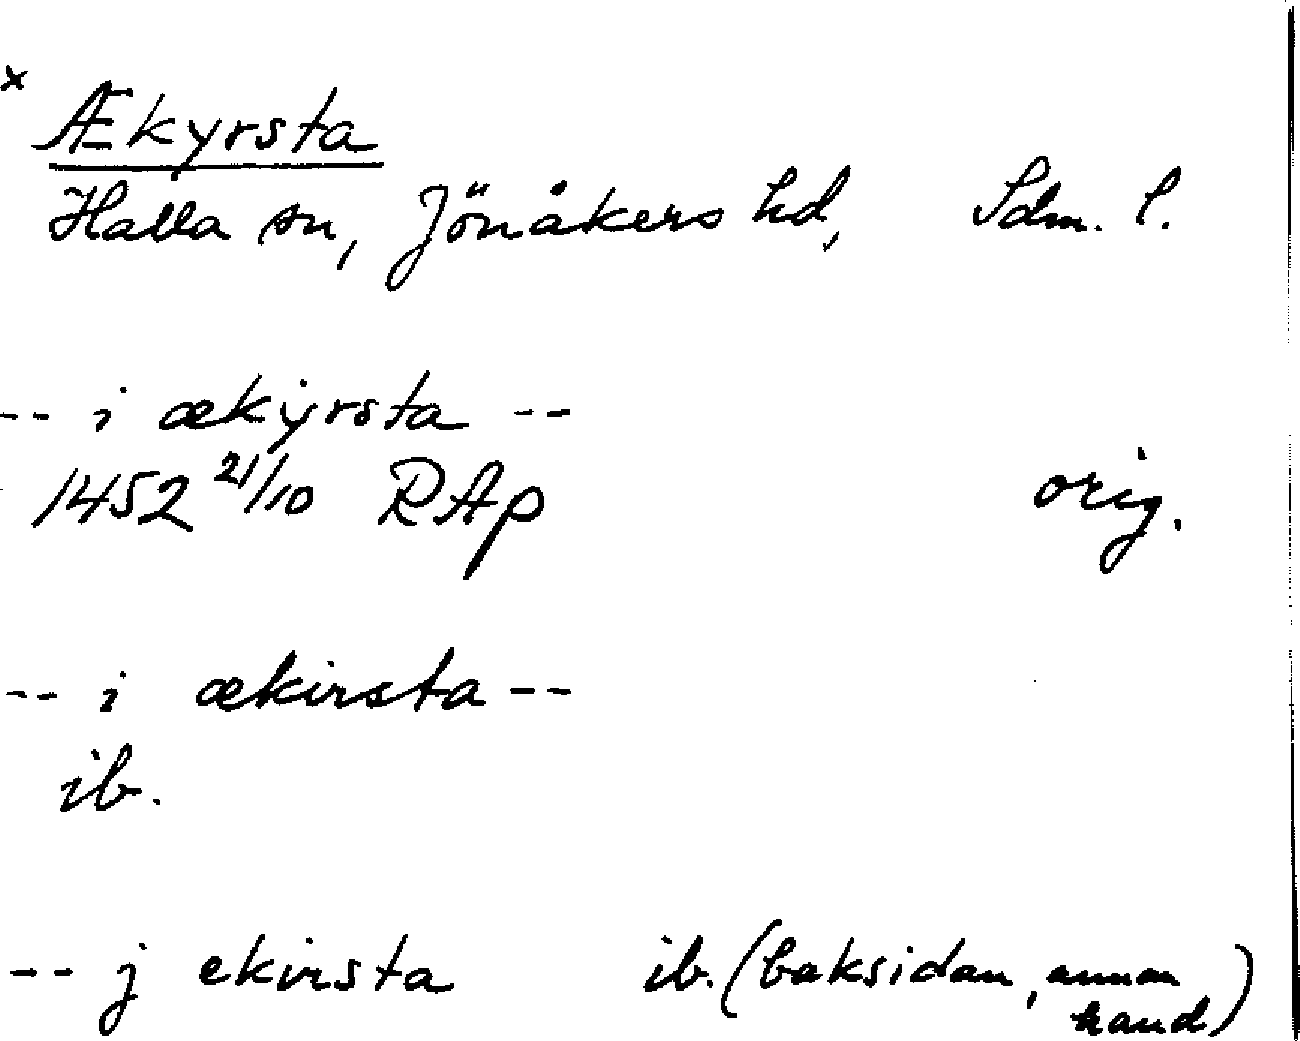 x
Ækyrsta
Halla sn, Jönåkers hd, Sdm. l.
-- i ækÿrsta --
1452 21/10 RAp orig.
-- i ækirsta --
ib.
-- j ekirsta ib. (baksidan, annan
hand)